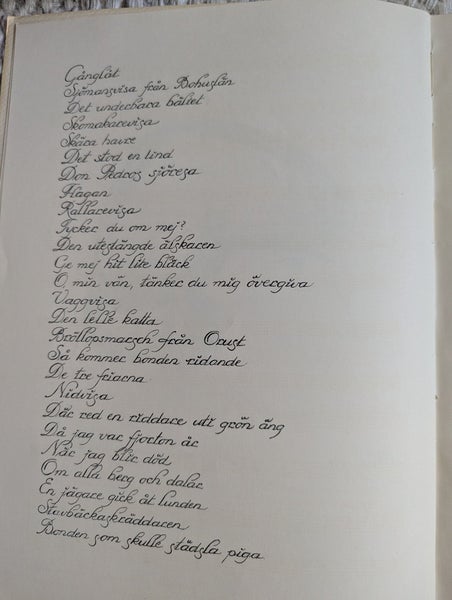 Gånglåt
Sjömansvisa från Bohuslän
Det underbara bältet
Skomakarevisa
Skära havre
Det stod en lind
Don Pedros sjöresa
Flagan
Rallarevisa
Tycker du om mej?
Den utestängde älskaren
Ge mej hit lite bläck
O, min vän, tänker du mig övergiva
Vaggvisa
Den lelle katta
Bröllopsmarsch från Orust
Så kommer bonden ridande
De tre friarna
Nidvisa
Där red en riddare uti grön äng
Då jag var fjorton år
När jag blir död
Om alla berg och dalar
En jägare gick åt lunden
Stavbäckaskräddaren
Bonden som skulle städsla piga